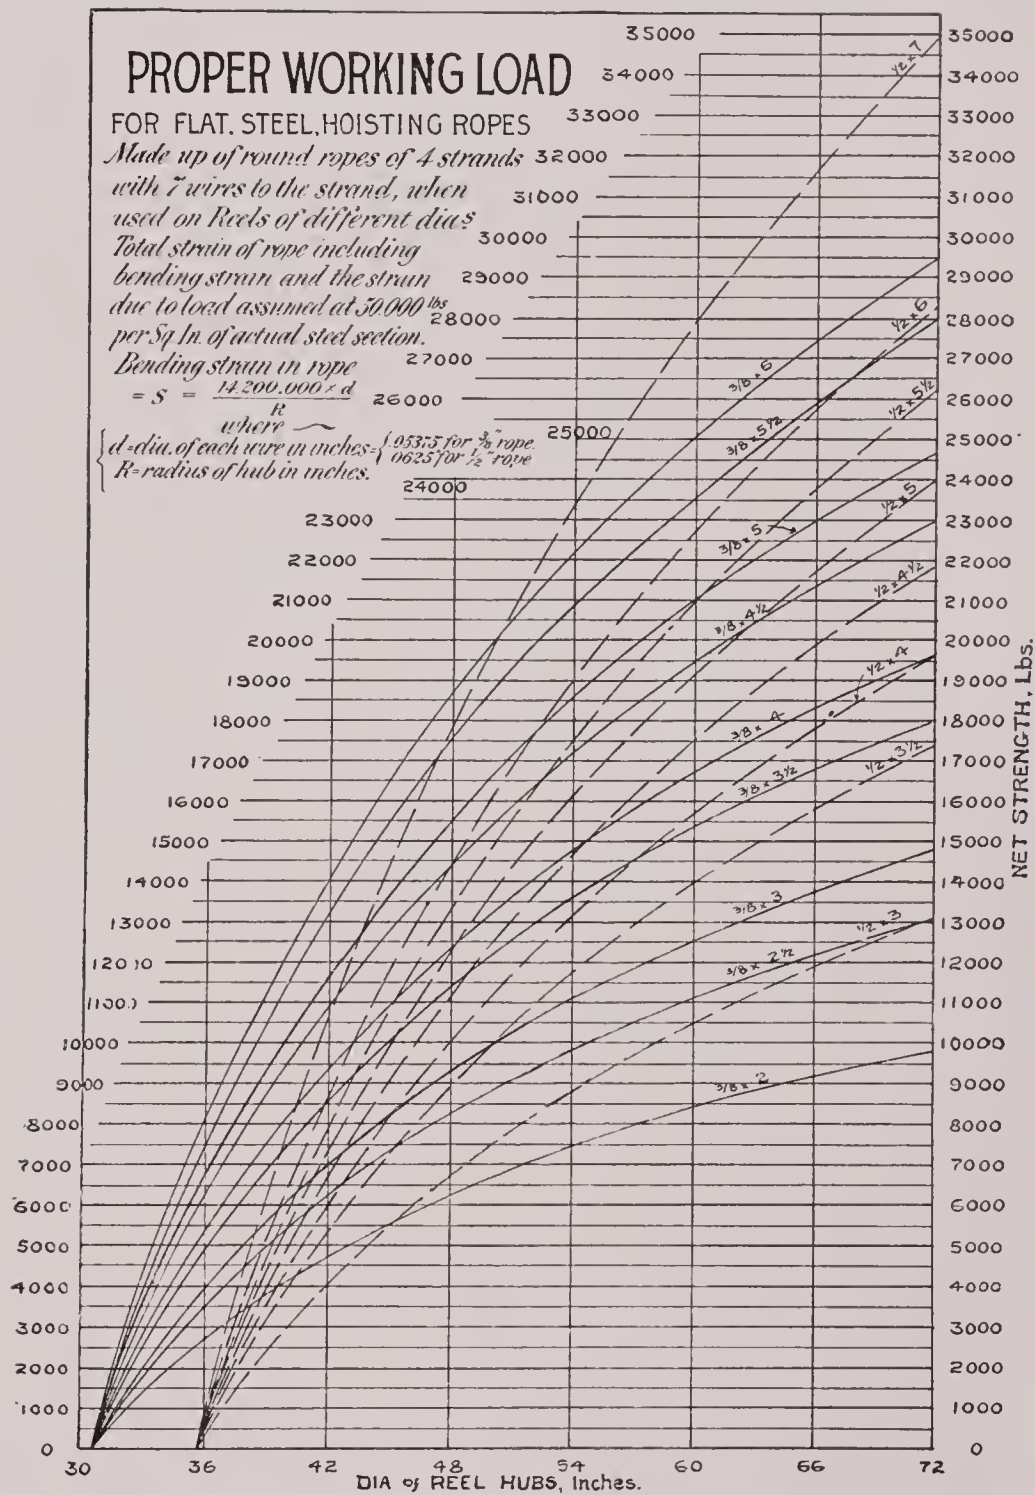 PROPER WORKING LOAD
FOR FLAT. STEEL, HOISTING ROPES
Made up of round ropes of 4 strands
with 7 wires to the strand, when
used on Reels of different dias
Total strain of rope including
bending strain and the strain
due to load assumed at 50.000 lbs
per Sq. In. of actual steel section.
Bending strain in rope
= S = 14.200.000 × d / R
where
d=dia. of each wire in inches= .05375 for 3/8" rope.
.0625 for 1/2" rope
R=radius of hub in inches.
35000
34000
33000
32000
31000
30000
29000
28000
27000
26000
25000
24000
23000
22000
21000
20000
19000
18000
17000
16000
15000
14000
13000
12000
11000
10000
9000
8000
7000
6000
5000
4000
3000
2000
1000
0
1/2 × 7
3/8 × 6
1/2 × 6
3/8 × 5 1/2
1/2 × 5 1/2
3/8 × 5
1/2 × 5
3/8 × 4 1/2
1/2 × 4 1/2
3/8 × 4
1/2 × 4
3/8 × 3 1/2
1/2 × 3 1/2
3/8 × 3
1/2 × 3
3/8 × 2 1/2
3/8 × 2
35000
34000
33000
32000
31000
30000
29000
28000
27000
26000
25000
24000
23000
22000
21000
20000
19000
18000
17000
16000
15000
14000
13000
12000
11000
10000
9000
8000
7000
6000
5000
4000
3000
2000
1000
0
NET STRENGTH, Lbs.
30 36 42 48 54 60 66 72
DIA of REEL HUBS, Inches.